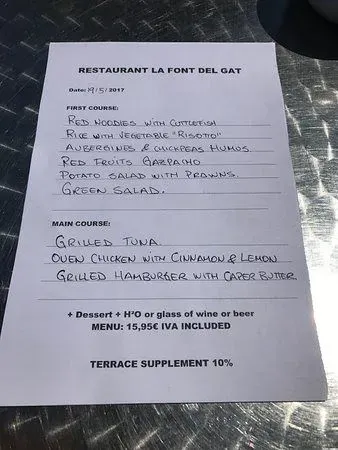 RESTAURANT LA FONT DEL GAT
Date: 19/5/2017
FIRST COURSE:
RED NOODLES WITH CUTTLEFISH
RICE WITH VEGETABLE "RISOTTO"
AUBERGINES & CHICKPEAS HUMUS.
RED FRUITS GAZPACHO
POTATO SALAD WITH PRAWNS.
GREEN SALAD.
MAIN COURSE:
GRILLED TUNA
OVEN CHICKEN WITH CINNAMON & LEMON
GRILLED HAMBURGER WITH CAPER BUTTER
+ Dessert + H²O or glass of wine or beer
MENU: 15,95€ IVA INCLUDED
TERRACE SUPPLEMENT 10%